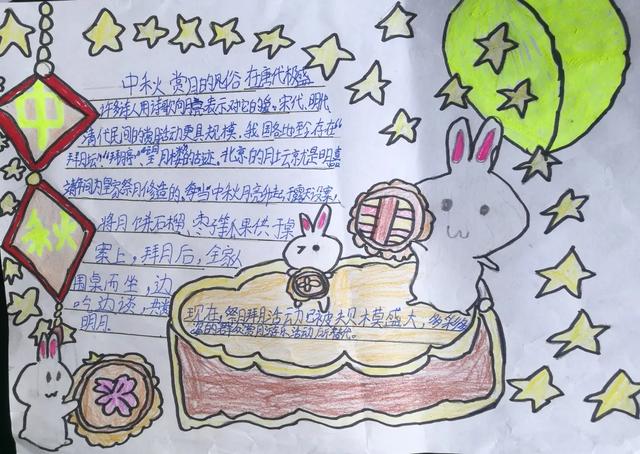 中
秋
中秋 赏月的风俗 在唐代极盛
许多诗人用诗歌向月亮表示对它的爱。宋代、明代
清代民间的赏月活动更具规模。我国各地珍存在“
拜月坛”“拜月亭”“望月楼”的古迹。北京的月坛就是明嘉
靖年间为皇家祭月修造的。每当中秋月亮升起,于露天设案,
将月饼石榴、枣子等水果供于桌
案上,拜月后,全家人
围桌而坐,边
吃边谈,共赏
明月。
现在,祭月拜月活动已被规模盛大、多彩
的群众赏月游乐活动所替代。